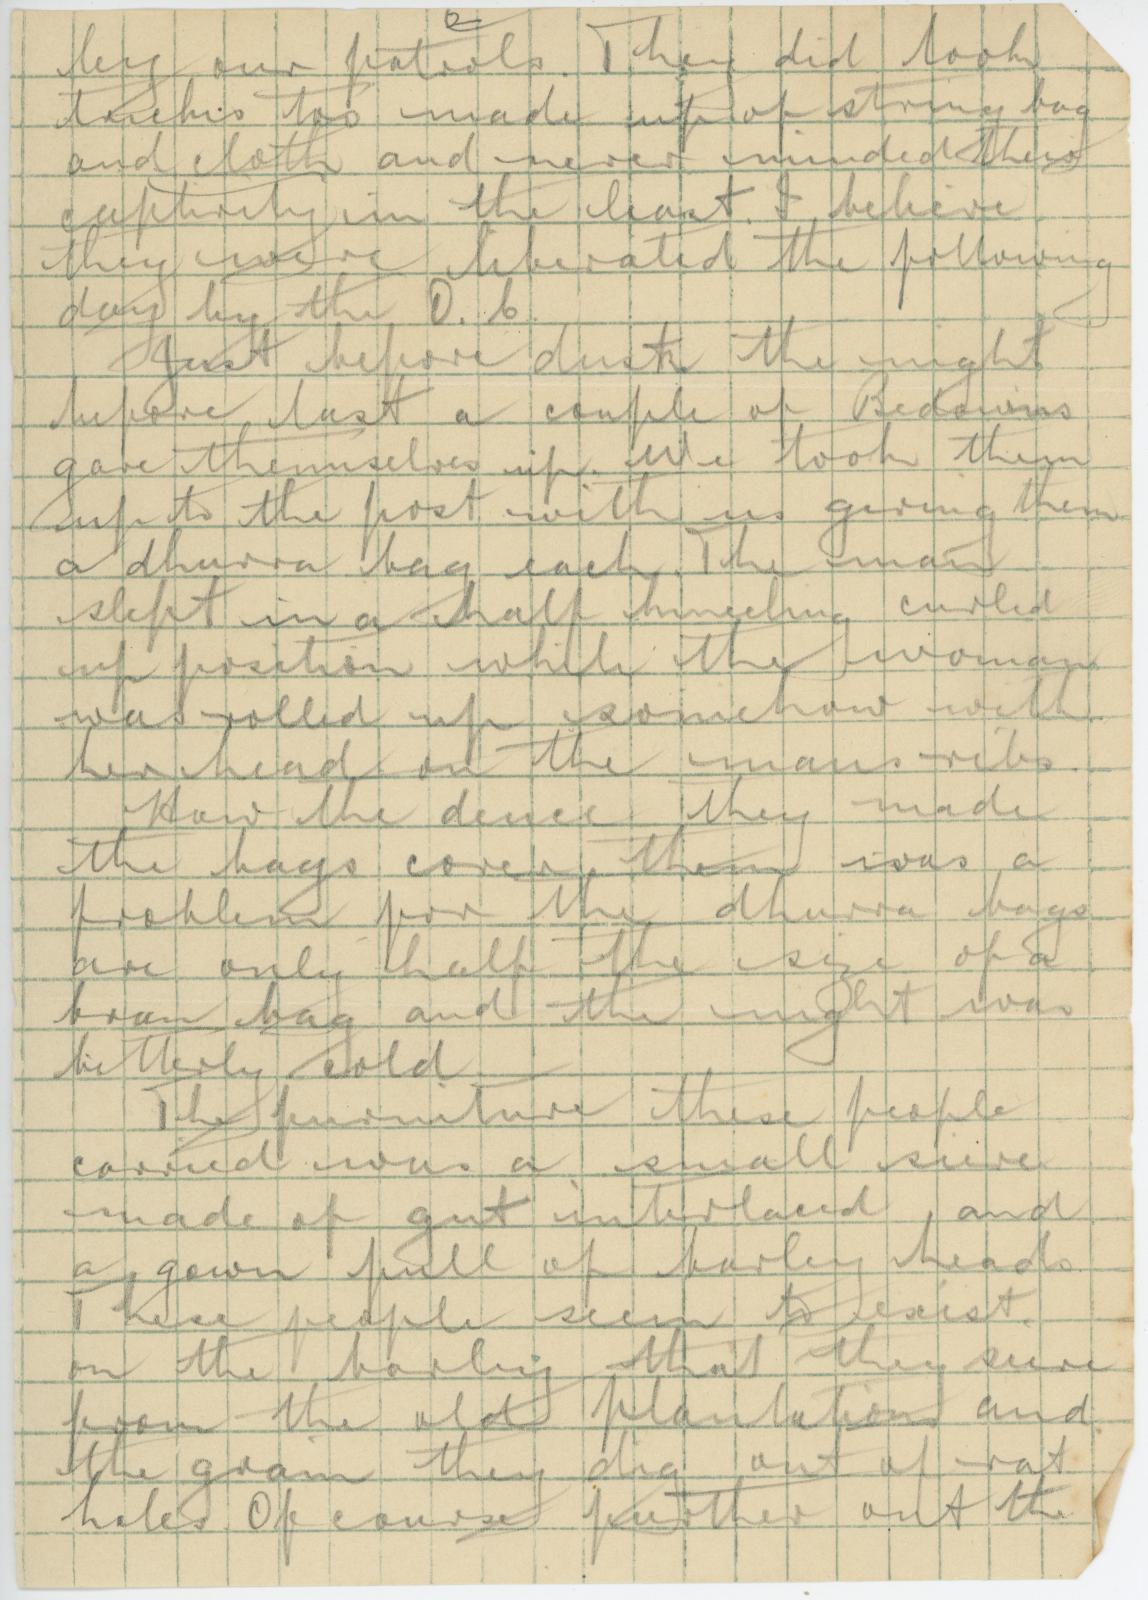 2
by our patrols. They did look
touchis too made up of string bag
and cloth and never minded their
captivity in the least. I believe
they were liberated the following
day by the O.C.
Just before dusk the night
before last a couple of Bedouins
gave themselves up. We took them
up to the post with us giving them
a dhurra bag each. The man
slept in a half kneeling curled
up position while the woman
was rolled up somehow with
her head on the mans ribs.
How the deuce they made
the bags cover them was a
problem for the dhurra bags
are only half the size of a
bran bag and the night was
bitterly cold
The furniture these people
carried was a small sieve
made of gut interlaced and
a gown full of barley heads.
These people seem to exist.
on the barley that they sieve
from the old plantations and
the grain they dig out of rat
holes. Of course further out the